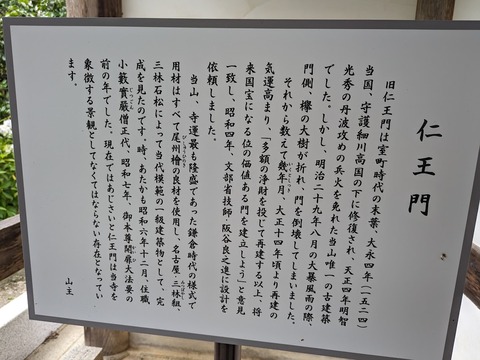 仁王門
旧仁王門は室町時代の末葉、大永四年（一五二四）
当国、守護細川高国の下に修復され、天正四年明智
光秀の丹波攻めの兵火を免れた当山唯一の古建築
でした。しかし、明治二十九年八月の大暴風雨の際、
門側、欅の大樹が折れ、門を倒壊してしまいました。
それから数えて幾年月、大正十四年頃より再建の
気運高まり、「多額の浄財を投じて再建する以上、将
来国宝になる位の価値ある門を建立しよう」と意見
一致し、昭和四年、文部省技師・阪谷良之進に設計を
依頼しました。
当山、寺運最も隆盛であった鎌倉時代の様式で
用材はすべて尾州檜の良材を使用し、名古屋・三林組
三林石松によって当代模範の一級建築物として、完
成を見たのです。時、あたかも昭和六年十二月、住職
小籔實嚴僧正代、昭和七年、御本尊開扉大法要の
前の年でした。現在ではあじさいと仁王門は当寺を
象徴する景観としてなくてはならない存在となってい
ます。
山主